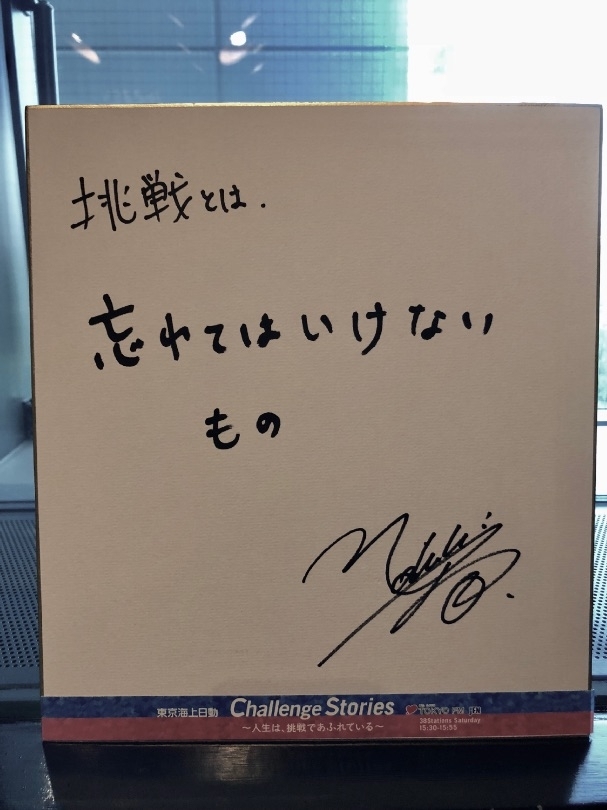 挑戦とは.
忘れてはいけない
もの
東京海上日動 Challenge Stories TOKYO FM
38Stations Saturday
〜人生は、挑戦であふれている〜 15:30-15:55